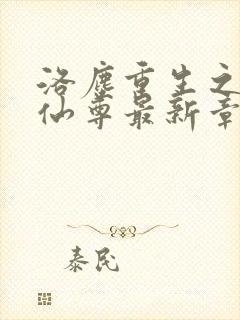 洛尘重生之
仙尊最新章
泰民